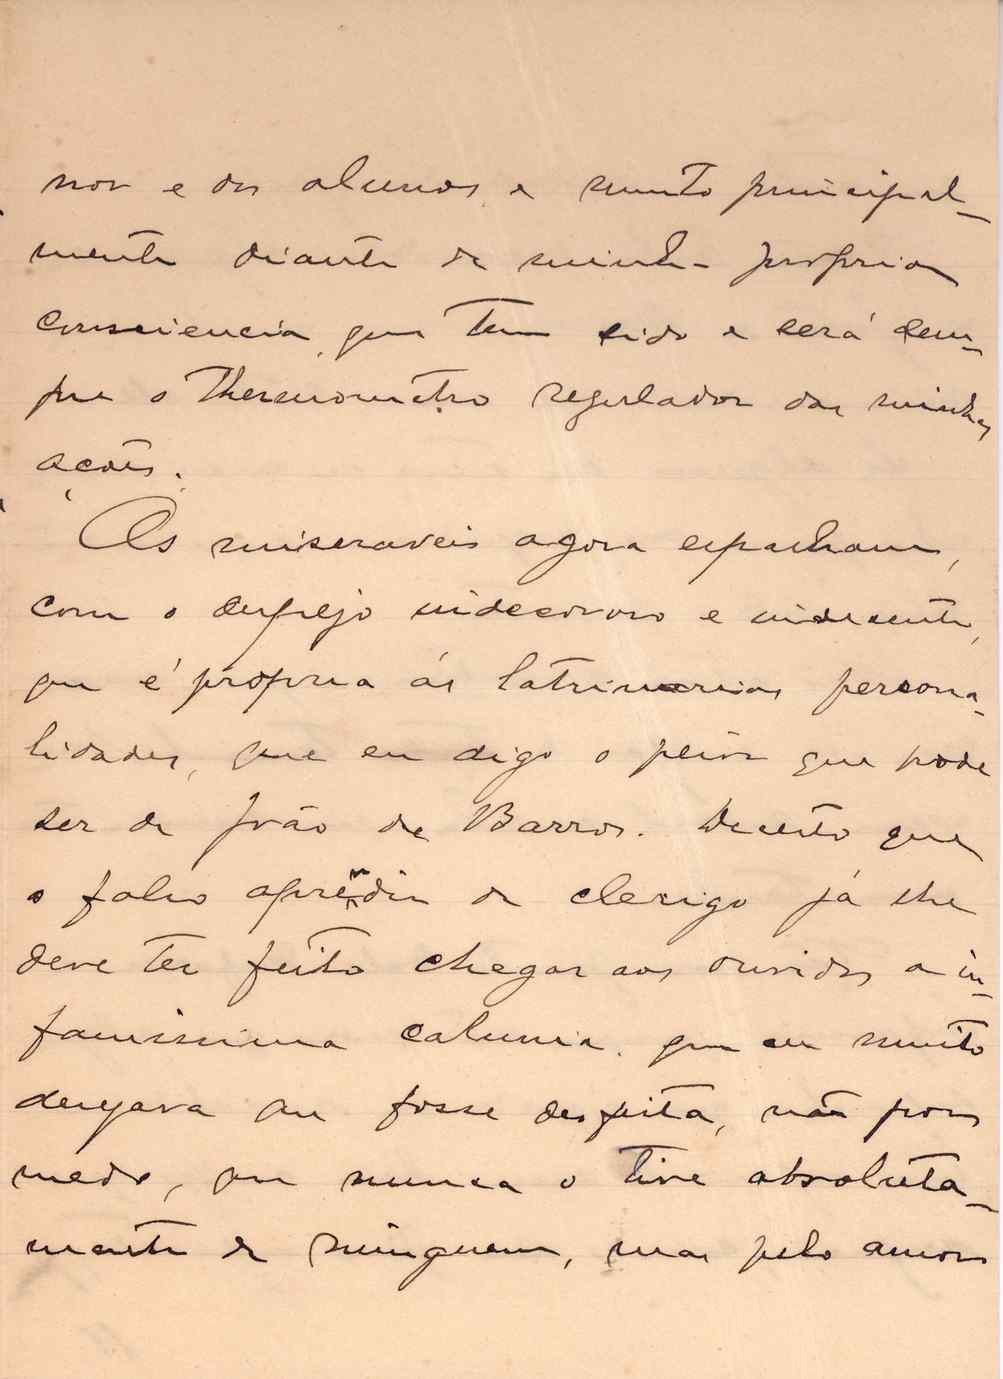 nos e dos alunos e muito principal-
mente diante da minha propria
consciencia, que tem sido e será sem-
pre o thermometro regulador das minhas
ações.
Os miseraveis agora espalham,
com o despejo indecoroso e indecente,
que é propria ás latrinarias persona-
lidades, que eu digo o peior que pode
ser de João de Barros. Decerto que
o falso aprendiz de clerigo já lhe
deve ter feito chegar aos ouvidos a in-
famissima calunia, que eu muito
desejava que fosse desfeita, não por
medo, que nunca o tive absoluta-
mente de ninguem, mas pelo amor